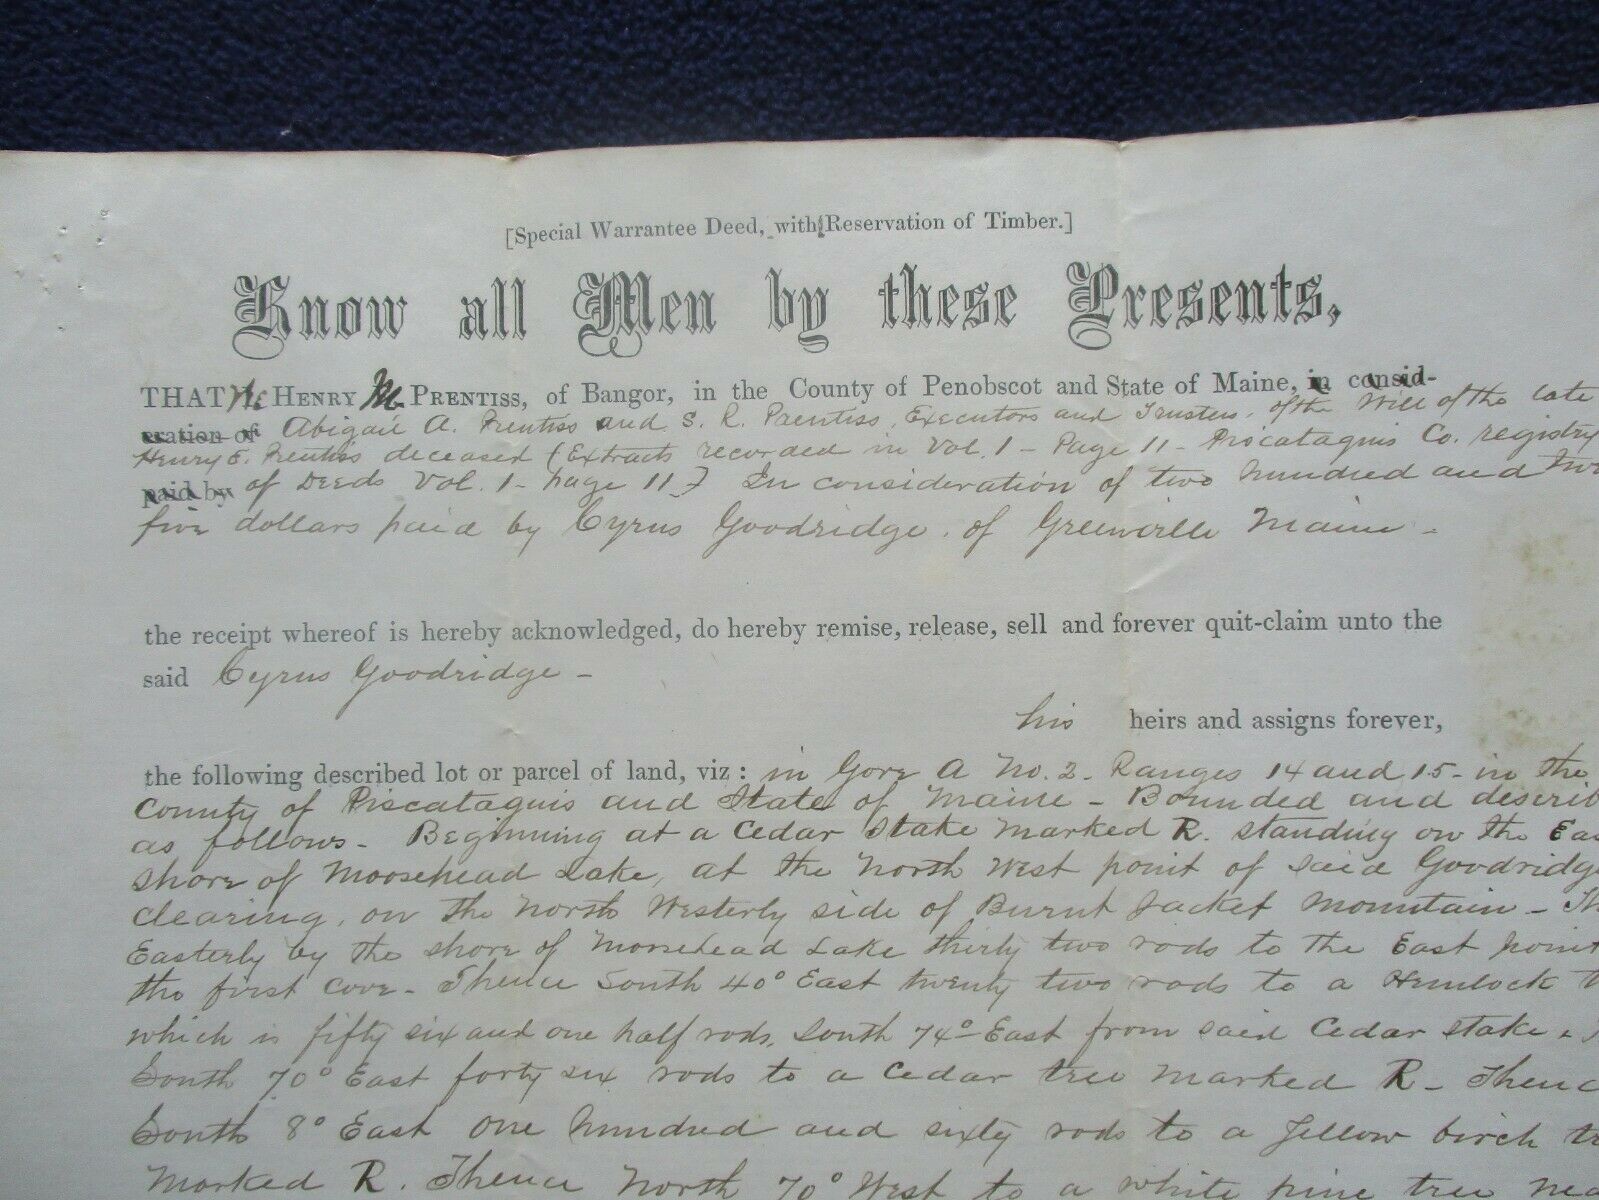 [Special Warrantee Deed, with Reservation of Timber.]
Know all Men by these Presents,
THAT We HENRY M. PRENTISS, of Bangor, in the County of Penobscot and State of Maine, in consid-
eration of Abigail A. Prentiss and S. R. Prentiss, Executors and Trustees, of the Will of the late
Henry E. Prentiss deceased (Extracts recorded in Vol. 1 - Page 11 - Piscataquis Co. registry
paid by of Deeds Vol. 1 - page 11) In consideration of two hundred and
five dollars paid by Cyrus Goodridge, of Greenville Maine -
the receipt whereof is hereby acknowledged, do hereby remise, release, sell and forever quit-claim unto the
said Cyrus Goodridge -
his heirs and assigns forever,
the following described lot or parcel of land, viz: in Gore A No. 2 - Ranges 14 and 15 - in the
County of Piscataquis and State of Maine - Bounded and describ
as follows - Beginning at a Cedar Stake marked R. standing on the Ea
shore of Moosehead Lake, at the North West point of said Goodridge
clearing, on the North Westerly side of Burnt Jacket Mountain - Th
Easterly by the shore of Moosehead Lake thirty two rods to the East point
the first cove - Thence South 40° East twenty two rods to a Hemlock t
which is fifty six and one half rods, South 74° East from said Cedar stake -
South 70° East forty six rods to a Cedar tree marked R - Thenc
South 8° East One hundred and sixty rods to a Yellow birch tr
marked R. Thence North 70° West to a white pine tree nea